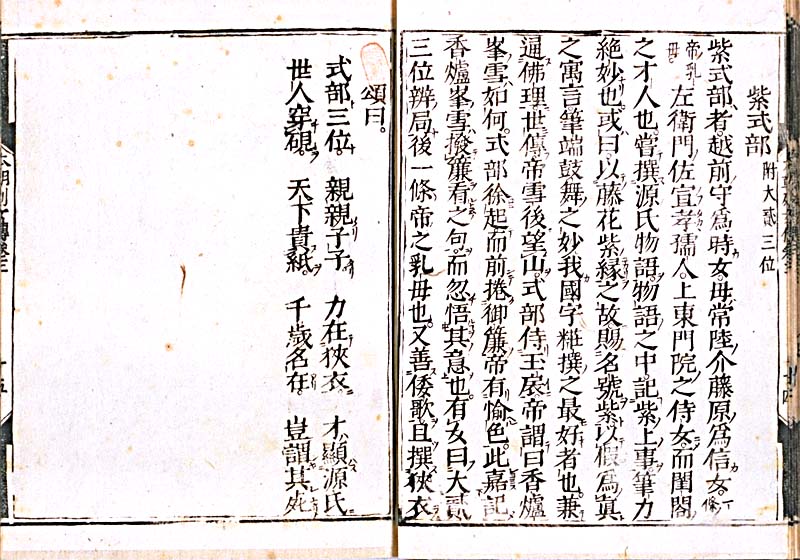 紫式部 附大貳三位
紫式部者越前守爲時女。毋常陸介藤原爲信女。一條
帝乳毋。左衛門佐宣孝孺人。上東門院之侍女。而閨閣
之才人也。嘗撰源氏物語。物語之中記紫上事筆力
絶妙也。或曰。以藤花紫縁之故賜名號紫。以假爲眞
之寓言筆端鼓舞之妙我國字粧撰之最好者也。兼
通佛理世傳帝雪後望山。式部侍玉扆帝謂曰香爐
峯雪如何。式部徐起而前捲御簾帝有愉色。此嘉記
香爐峯雪撥簾看之句。而忽悟其意也。有女曰大貳
三位辨局後一條帝之乳毋也。又善倭歌且撰狹衣
頌曰。
式部三位。 親親子子 力在狹衣。 才顯源氏
世人穿硯。 天下貴紙。 千歳名在。 豈謂其死